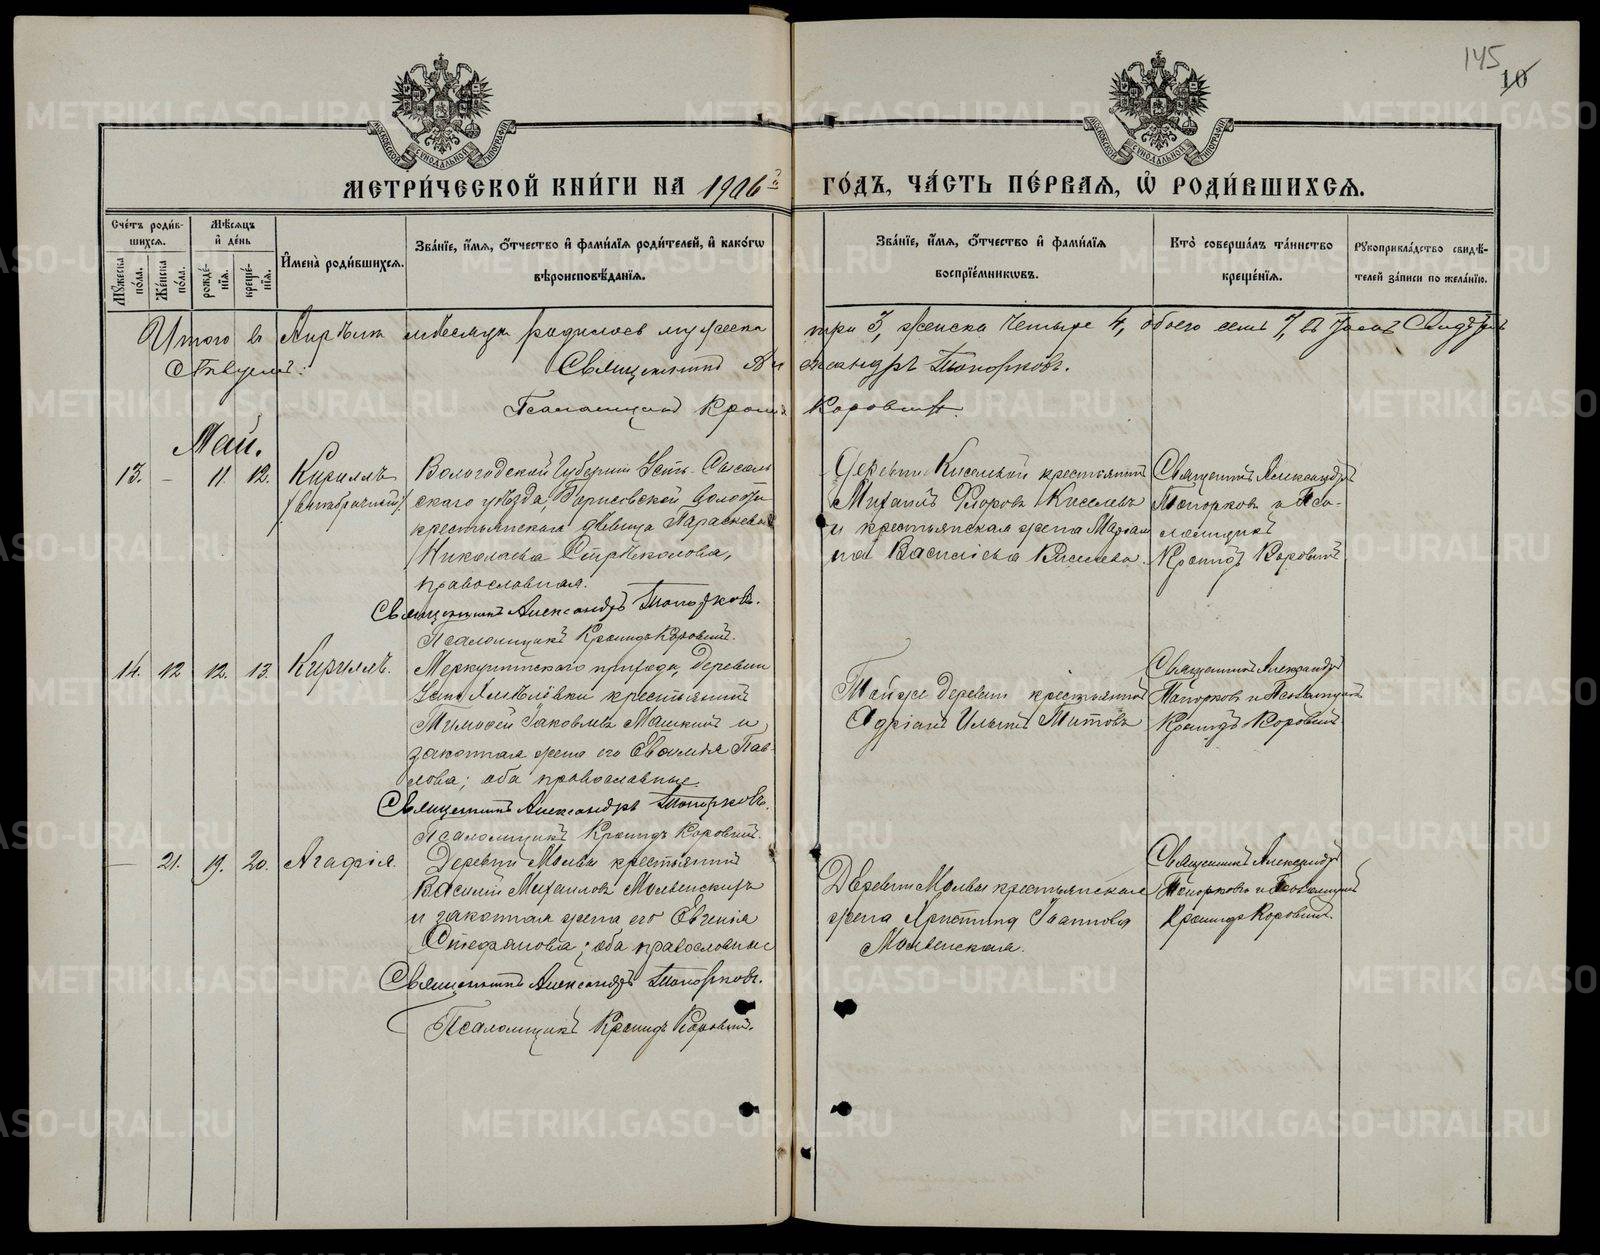 145
10
МЕТРИ́ЧЕСКОЙ КНИ́ГИ НА 1906 й ГО́ДЪ, ЧА́СТЬ ПЕ́РВАЯ, Ѿ РОДИ́ВШИХСЯ.
Сче́тъ роди́вшихся.
Му́жеска по́ла.
Же́нска по́ла.
Мѣ́сяцъ и҆ де́нь
рожде́нїя.
креще́нїя.
И҆мена̀ роди́вшихся.
Зва́нїе, и҆́мя, ѻ҆́тчество и҆ фами́лїя роди́телей, и҆ како́гѡ
вѣроисповѣ́данїя.
Зва́нїе, и҆́мя, ѻ҆́тчество и҆ фами́лїя
воспрїе́мникѡвъ.
Кто̀ соверша́лъ та́инство
креще́нїя.
Рꙋкоприкла́дство свидѣ́-
телей за́писи по жела́нїю.
Итого въ Апрѣлѣ мѣсяцѣ родилось мужеска три 3, женска четыре 4, обоего семь 7,
Священникъ Александръ Топорковъ.
Псаломщикъ Кронидъ Коровинъ.
Май.
13. – 11 12. Кириллъ
(внѣбрачный)
Вологодской Губерніи Усть-Сысоль
скаго уѣзда, волости
крестьянская дѣвица Параскева
Николаева Стрѣкалова,
православная.
Священникъ Александръ Топорковъ.
Псаломщикъ Кронидъ Коровинъ.
Деревни Киселевой крестьянинъ
Михаилъ Флоровъ Киселевъ
и крестьянская жена
Васильева Киселева.
Священникъ Александръ
Топорковъ и Пса-
ломщикъ
Кронидъ Коровинъ
14. 12 12. 13. Кириллъ.
Меркушинскаго прихода, деревни
крестьянинъ
Тимофей Іаковлевъ и
законная жена его Пав-
лова; оба православные
Священникъ Александръ Топорковъ.
Псаломщикъ Кронидъ Коровинъ.
Той же деревни крестьянинъ
Адріанъ Ильинъ Титовъ
Священникъ Александръ
Топорковъ и Псаломщикъ
Кронидъ Коровинъ.
– 21. 19. 20. Агафія.
Деревни Молвы крестьянинъ
Василій Михаиловъ Молвенскихъ
и законная жена его Евгенія
Стефановна; оба православные
Священникъ Александръ Топорковъ.
Псаломщикъ Кронидъ Коровинъ.
Деревни Молвы крестьянская
жена Христина Іоаннова
Молвенская.
Священникъ Александръ
Топорковъ и Псаломщикъ
Кронидъ Коровинъ.
METRIKI.GASO-URAL.RU